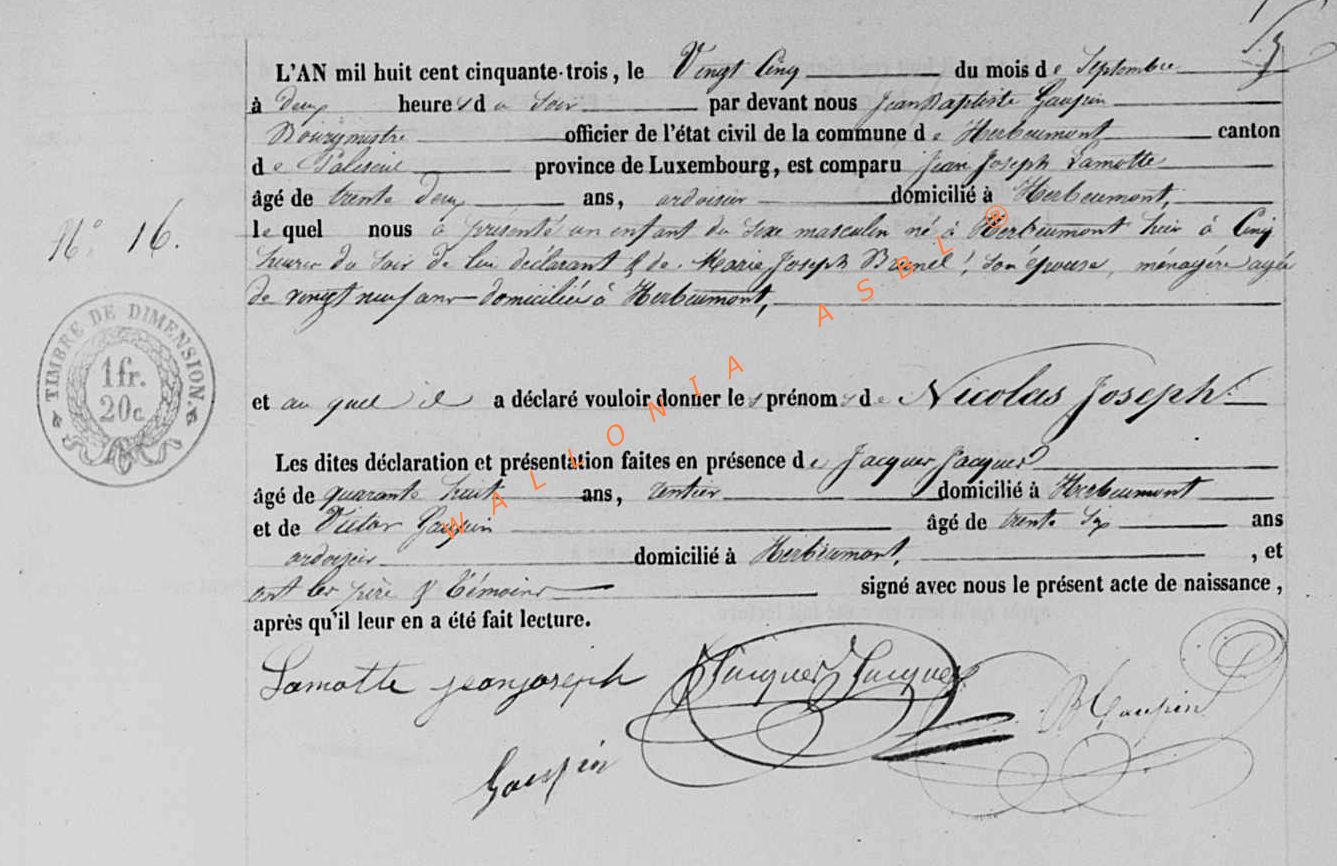 L'AN mil huit cent cinquante-trois, le Vingt Cinq du mois de Septembre
à deux heures du soir par devant nous Jean Baptiste Gaupin
Bourgmestre officier de l'état civil de la commune de Herbeumont canton
de Paliseul province de Luxembourg, est comparu Jean Joseph Lamotte
âgé de trente deux ans, ardoisier domicilié à Herbeumont,
N° 16.
le quel nous a présenté un enfant du sexe masculin né à Herbeumont hier à Cinq
heures du soir de lui déclarant & de Marie Joseph son épouse, ménagère agée
de vingt neuf ans domiciliés à Herbeumont,
TIMBRE DE DIMENSION.
1fr.
20c.
et au quel il a déclaré vouloir donner les prénoms de Nicolas Joseph.
Les dites déclaration et présentation faites en présence de Jacques Jacques
âgé de quarante huit ans, rentier domicilié à Herbeumont
et de Victor Gaupin âgé de trente six ans
ardoisier domicilié à Herbeumont, , et
ont les père & témoins signé avec nous le présent acte de naissance,
après qu'il leur en a été fait lecture.
Lamotte jean joseph Jacques Jacques Gaupin
Gaupin
WALLONIA ASBL ®